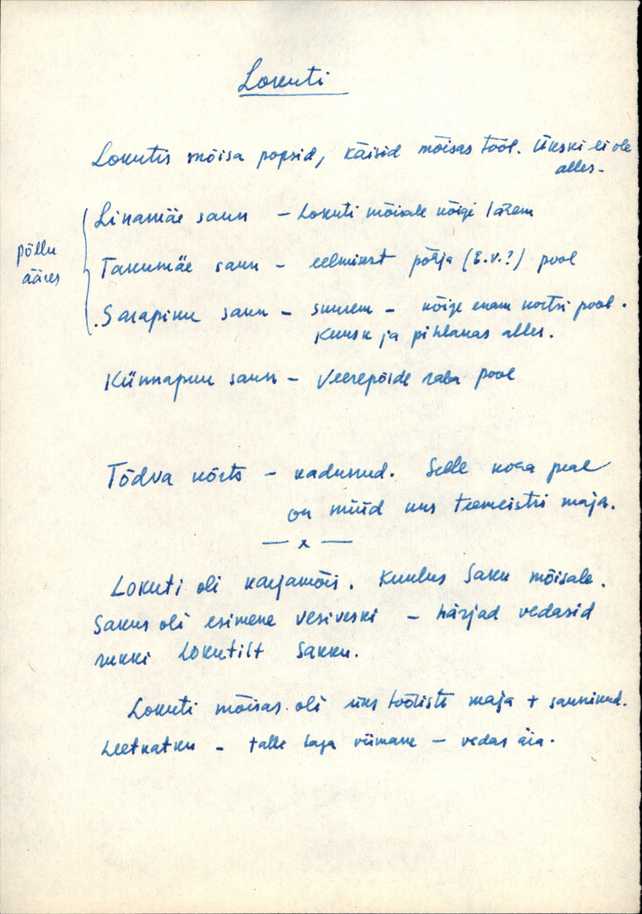 Lokuti
Lokutis mõisa popsid, käisid mõisas tööl. Ükski ei ole
alles.
põllu
ääres
Linamäe saun – Lokuti mõisale kõige lärem
Takumäe saun – eelmisest põhja (E.V.?) pool
Sarapiku saun – suurem – kõige enam kortsi pool.
Kuusk ja pihlakas alles.
Künnapuu saun – Veerepõide raba pool
Tõdva kõrts – kadunud. Selle koha peal
on nüüd uus teemeistri maja.
— x —
Lokuti oli karjamõis. Kuulus Saku mõisale.
Sakus oli esimene vesiveski – härjad vedasid
rukki Lokutilt Sakku.
Lokuti mõisas oli üks tööliste maja + saunikud.
Leetkatku – talle taga viimane – vedas äia.